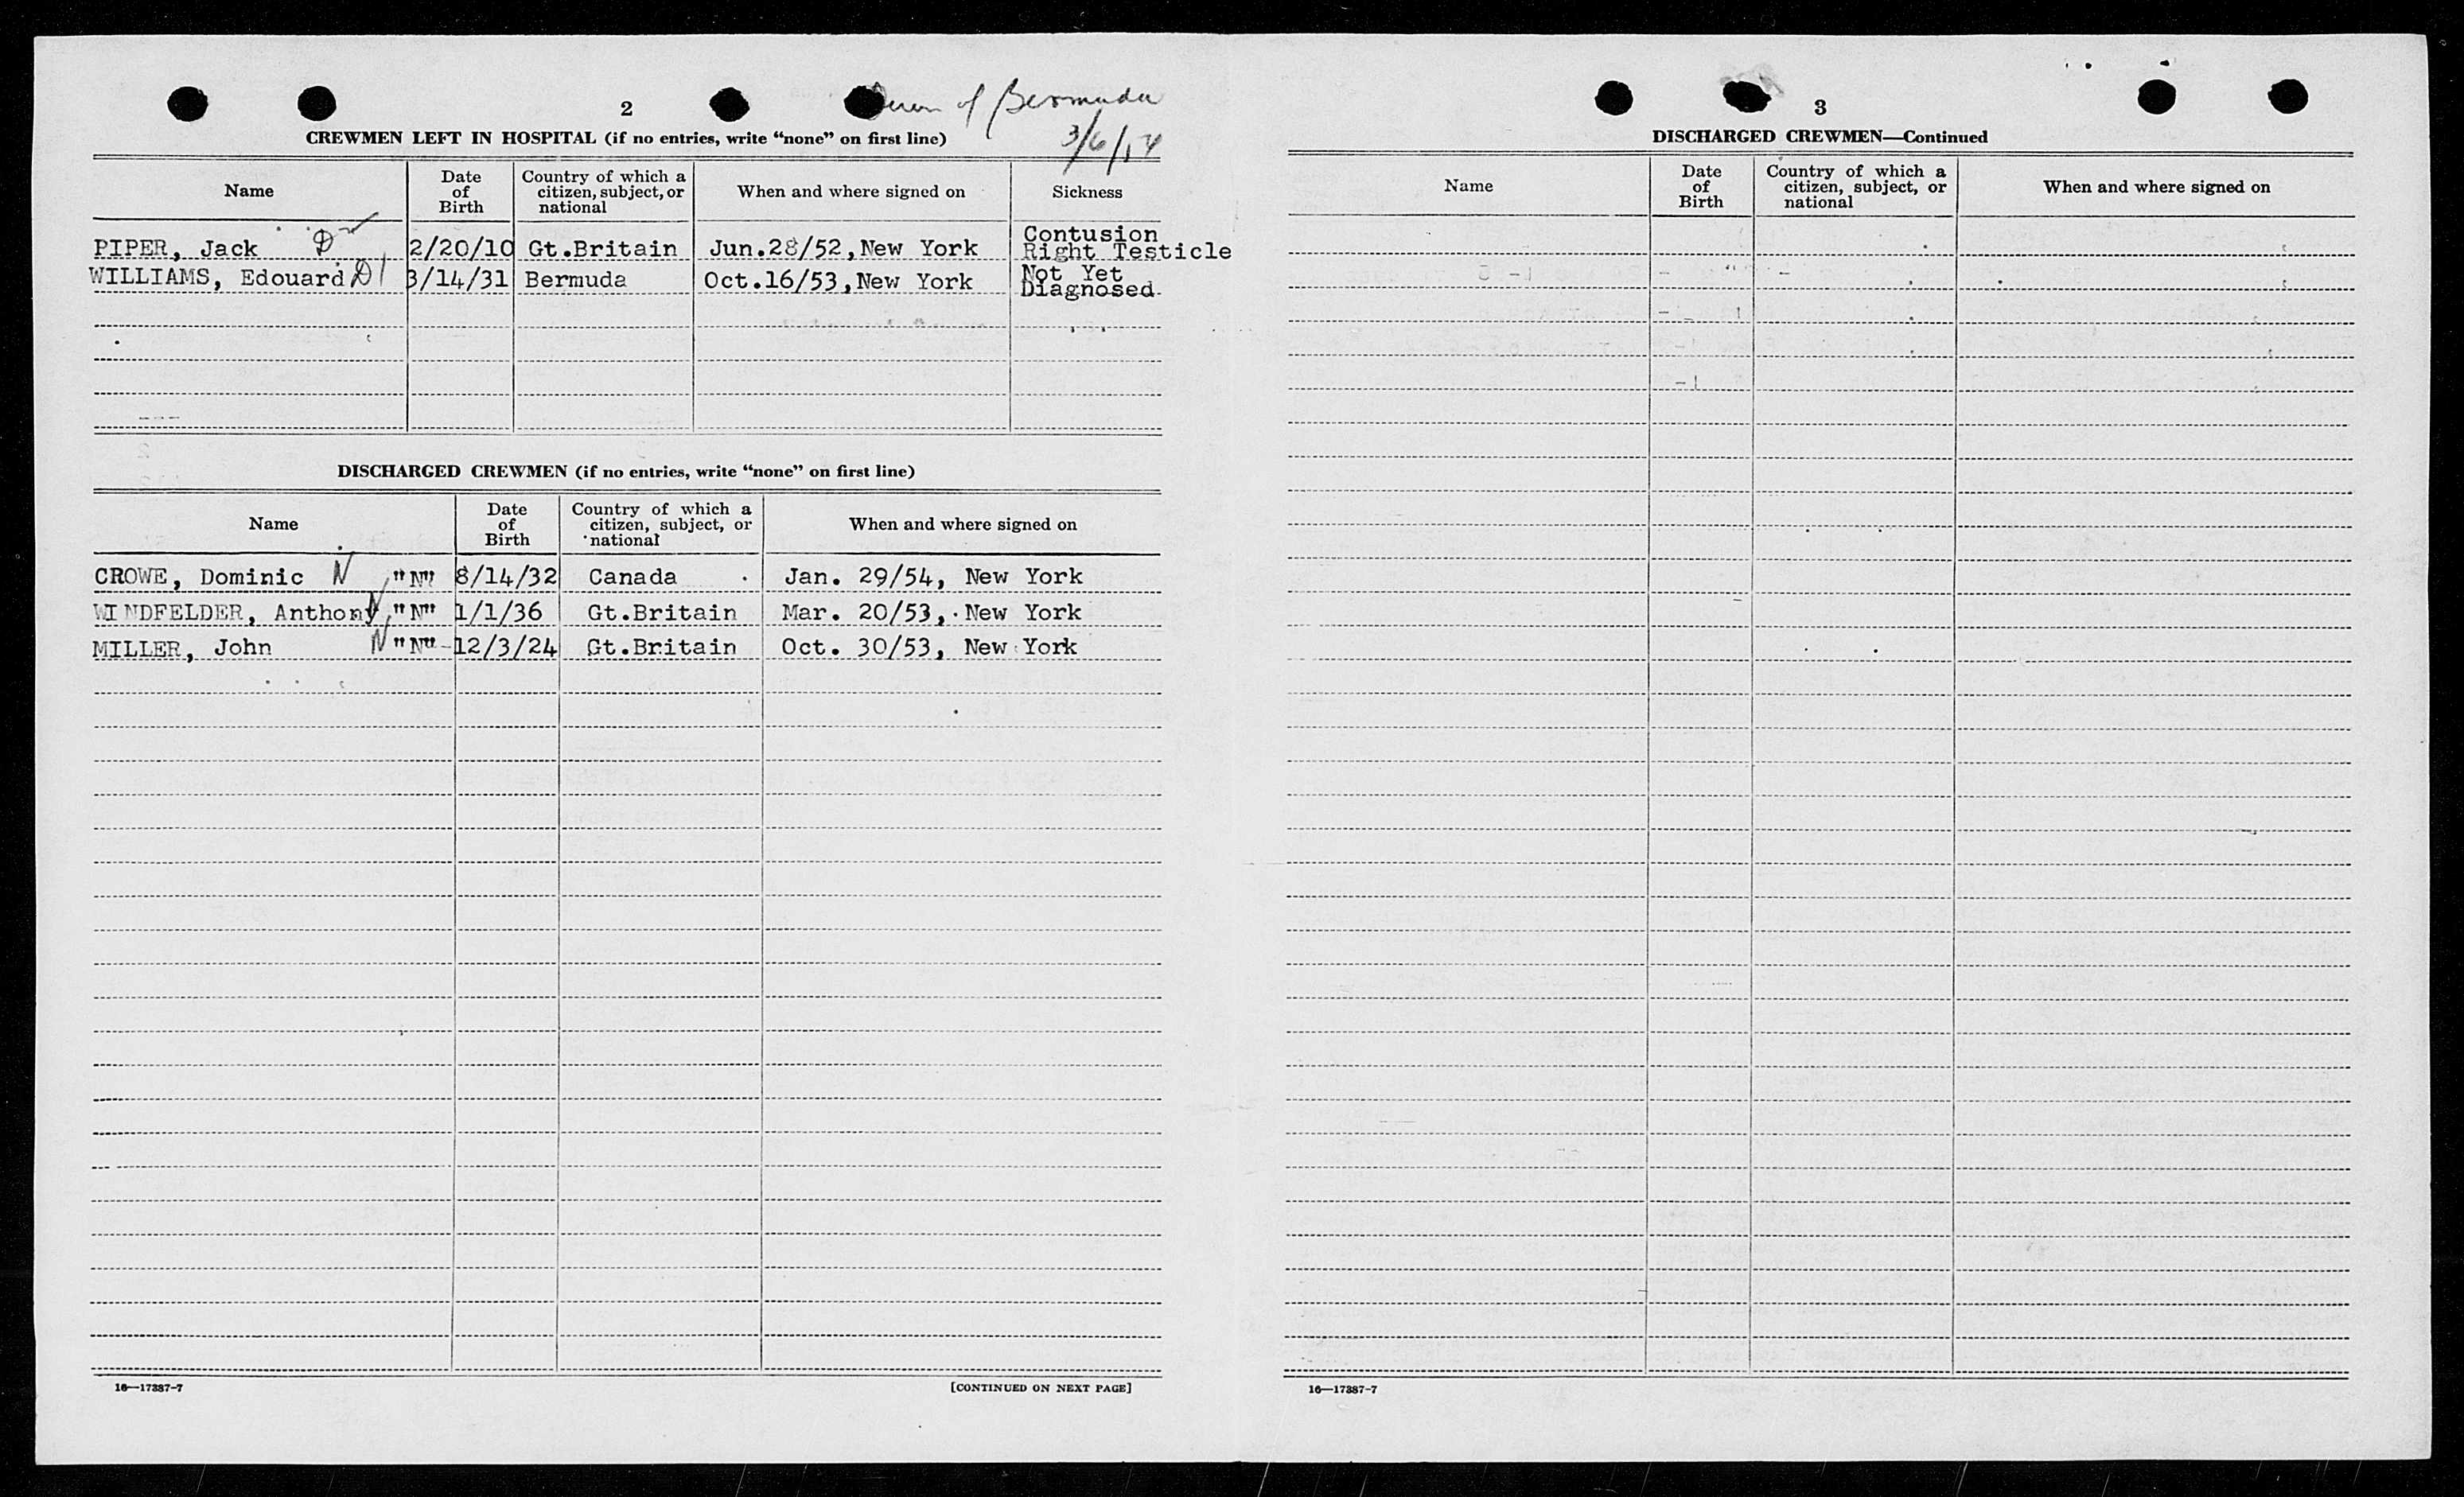 2
of Bermuda
3/6/54
CREWMEN LEFT IN HOSPITAL (if no entries, write “none” on first line)
Name Date of Birth Country of which a citizen, subject, or national When and where signed on Sickness
PIPER, Jack D 2/20/10 Gt.Britain Jun.28/52, New York Contusion Right Testicle
WILLIAMS, Edouard D 3/14/31 Bermuda Oct.16/53, New York Not Yet Diagnosed
DISCHARGED CREWMEN (if no entries, write “none” on first line)
Name Date of Birth Country of which a citizen, subject, or national When and where signed on
CROWE, Dominic N "N" 8/14/32 Canada Jan. 29/54, New York
WINDFELDER, Anthony N "N" 1/1/36 Gt.Britain Mar. 20/53, New York
MILLER, John N "N" 12/3/24 Gt.Britain Oct. 30/53, New York
16—17387-7 [CONTINUED ON NEXT PAGE]
3
DISCHARGED CREWMEN—Continued
Name Date of Birth Country of which a citizen, subject, or national When and where signed on
16—17387-7